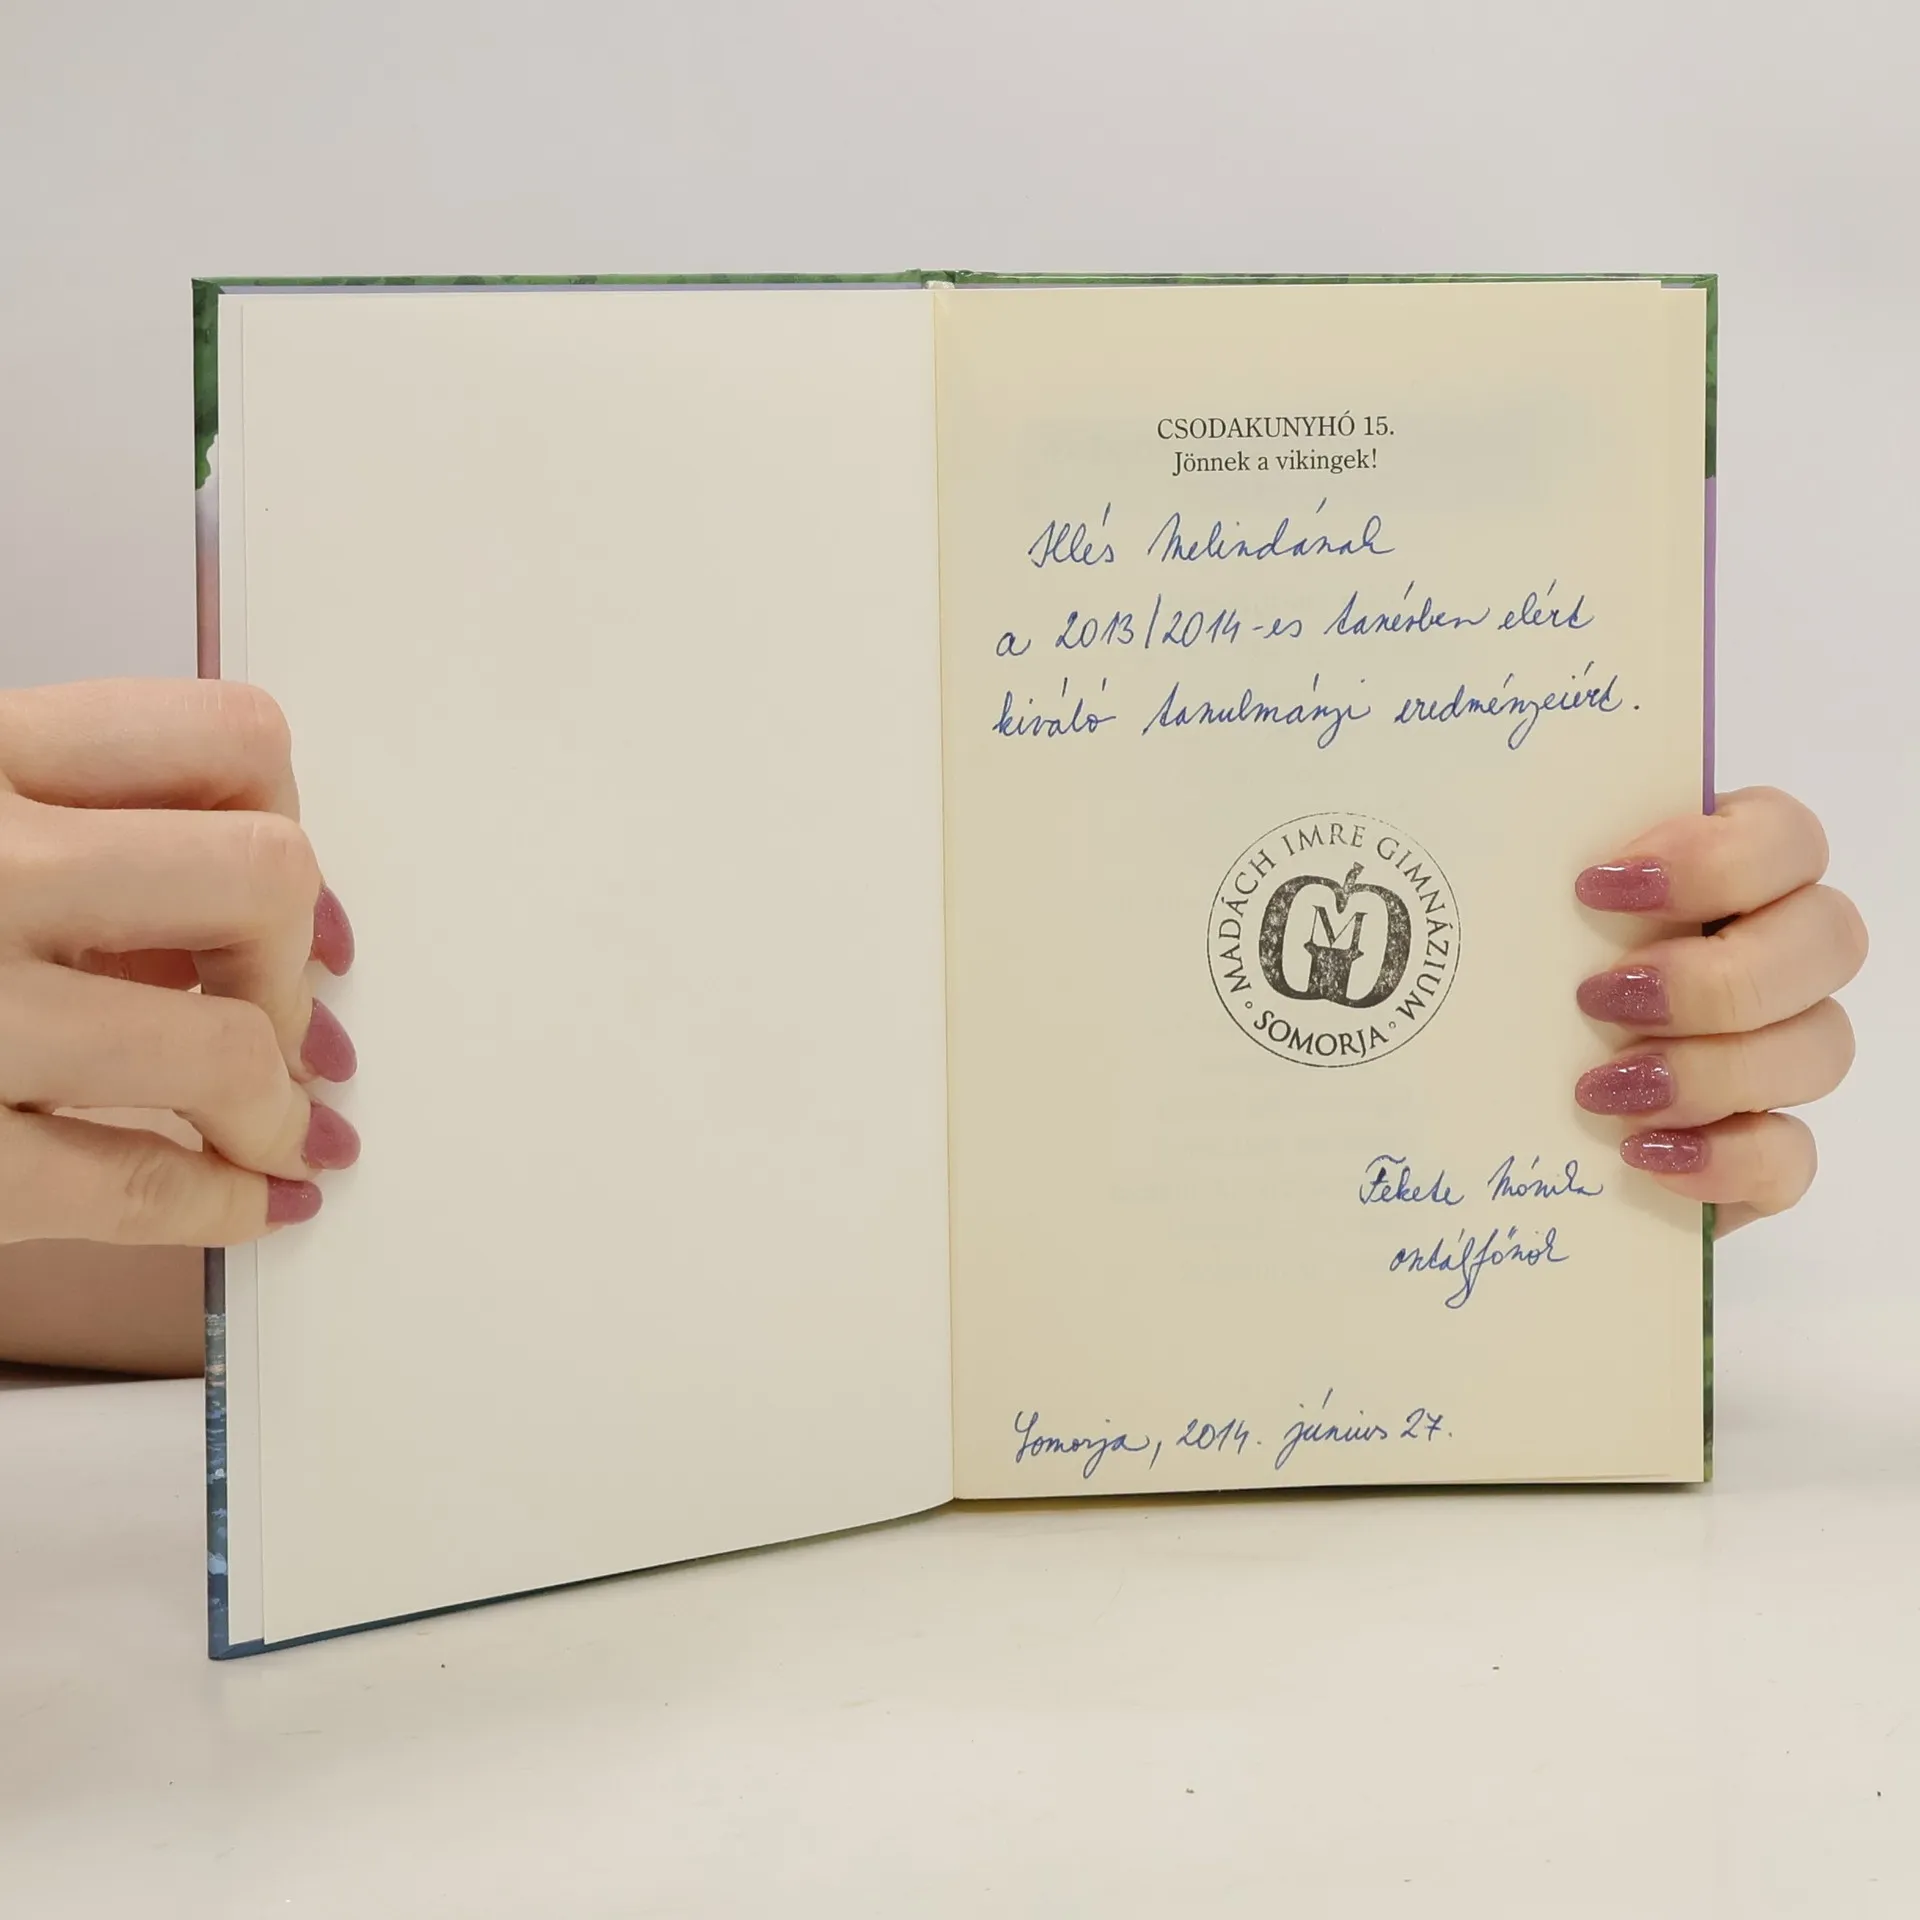 CSODAKUNYHÓ 15.
Jönnek a vikingek!
Illés Melindának
a 2013/2014-es tanévben elért
kiváló tanulmányi eredményeiért.
MADÁCH IMRE GIMNÁZIUM
GM
SOMORJA
Fekete Mónika
osztályfőnök
Somorja, 2014. június 27.